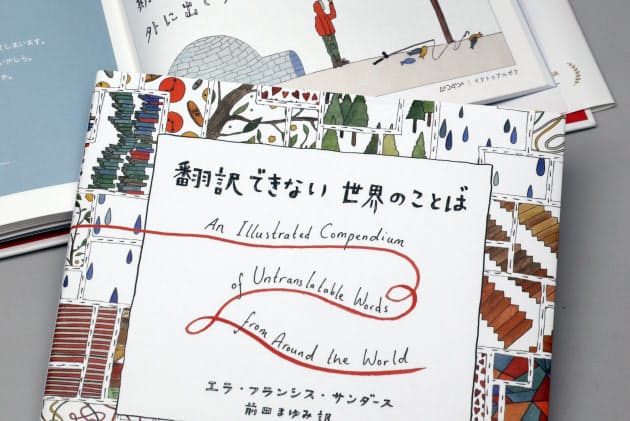 てしまいます。
いかしら。
か。
外に出
イクトゥアルポク
翻訳できない 世界のことば
An Illustrated Compendium
of Untranslatable Words
from Around the World
エラ・フランシス・サンダース
前田まゆみ 訳